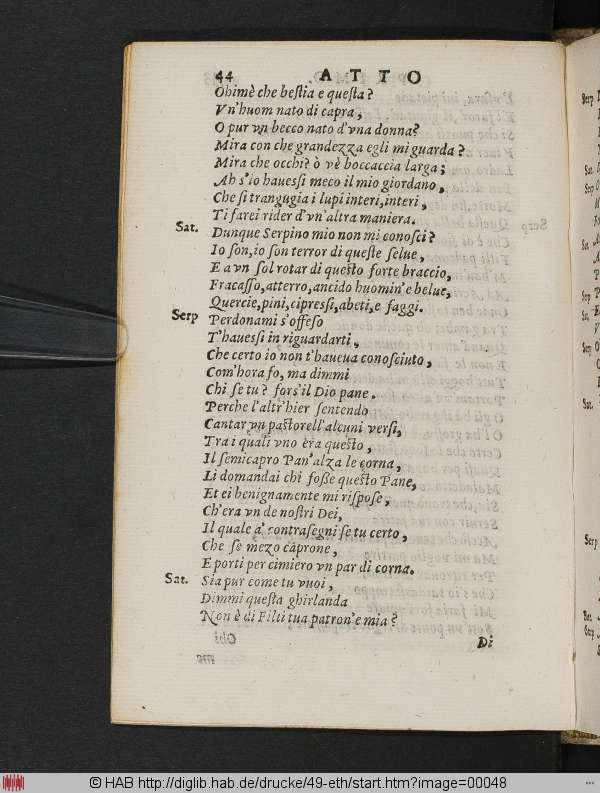 44 ATTO
Ohimè che bestia e questa?
Vn'huom nato di capra,
O pur vn becco nato d'vna donna?
Mira con che grandezza egli mi guarda?
Mira che occhi? ò vè boccaccia larga;
Ah s'io hauessi meco il mio giordano,
Che si trangugia i lupi interi, interi,
Ti farei rider d'vn'altra maniera.
Sat. Dunque Serpino mio non mi conosci?
Io son, io son terror di queste selue,
E a vn sol rotar di questo forte braccio,
Fracasso, atterro, ancido huomin'e belue,
Quercie, pini, cipressi, abeti, e faggi.
Serp Perdonami s'offeso
T'hauessi in riguardarti,
Che certo io non t'haueua conosciuto,
Com'hora fo, ma dimmi
Chi se tu? fors'il Dio pane.
Perche l'altr'hier sentendo
Cantar vn pastorell'alcuni versi,
Tra i quali vno èra questo,
Il semicapro Pan'alza le corna,
Li domandai chi fosse questo Pane,
Et ei benignamente mi rispose,
Ch'era vn de nostri Dei,
Il quale a' contrasegni se tu certo,
Che se mezo caprone,
E porti per cimiero vn par di corna.
Sat. Sia pur come tu vuoi,
Dimmi questa ghirlanda
Non è di Filli tua patron'e mia?
Di
© HAB http://diglib.hab.de/drucke/49-eth/start.htm?image=00048